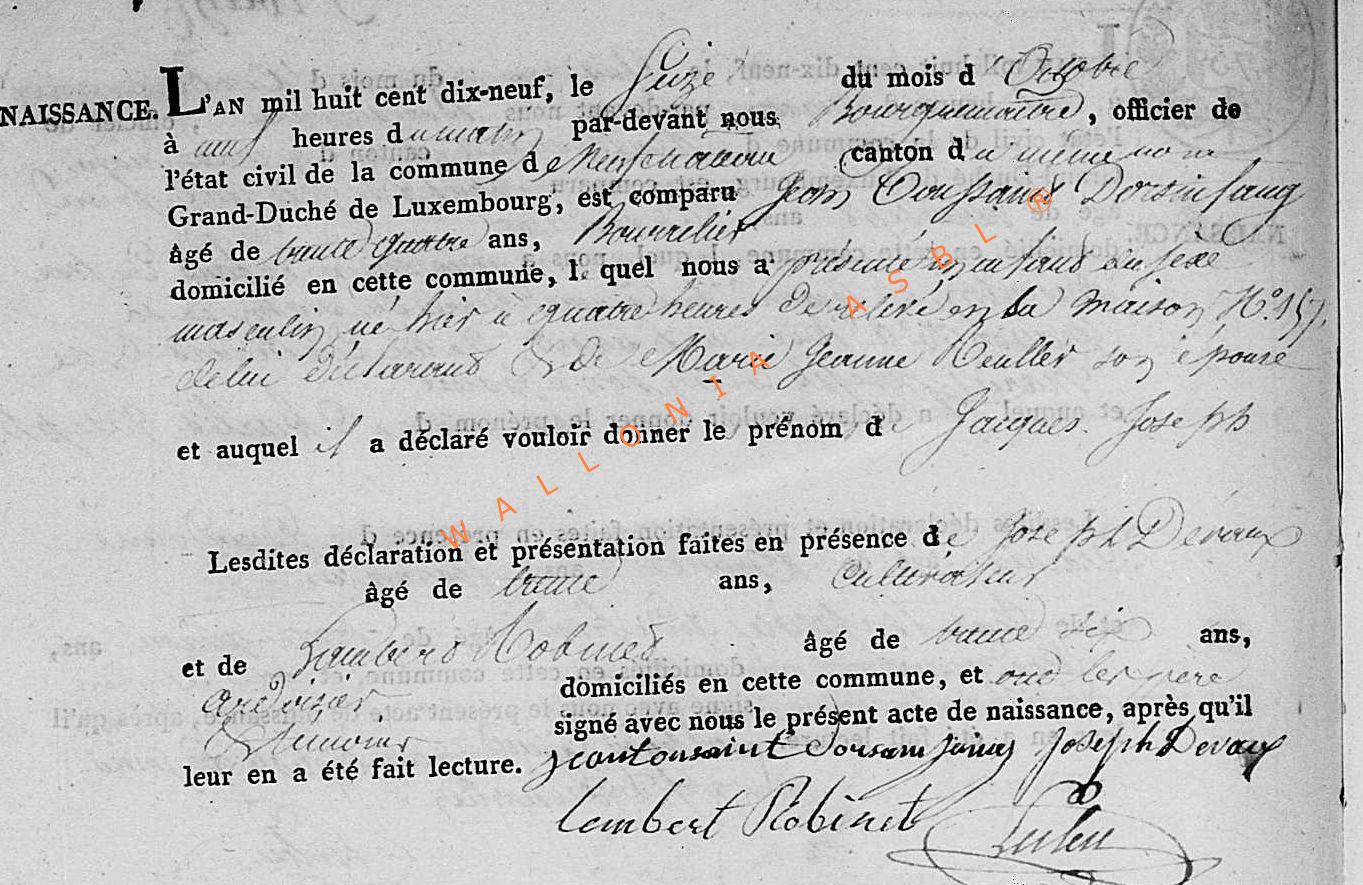 NAISSANCE. L'AN mil huit cent dix-neuf, le Seize du mois d'Octobre
à neuf heures du matin par-devant nous Bourguemaître, officier de
l'état civil de la commune de Neufchateau canton du même nom
Grand-Duché de Luxembourg, est comparu Jean Toussaint Dorsinfang
âgé de trente quatre ans, Bourrelier
domicilié en cette commune, lequel nous a présenté un enfant du sexe
masculin né hier à quatre heures de relevé en sa maison N.o 157.
de lui déclarant & de Marie Jeanne son épouse
et auquel il a déclaré vouloir donner le prénom d Jacques Joseph
Lesdites déclaration et présentation faites en présence de Joseph Devaux
âgé de trente ans, cultivateur
et de Lambert Robinet âgé de trente six ans,
ardoisier domiciliés en cette commune, et ont les père
& témoins signé avec nous le présent acte de naissance, après qu'il
leur en a été fait lecture. jean tousaint Joseph Devaux
Lambert Robinet
WALLONIA ASBL ®